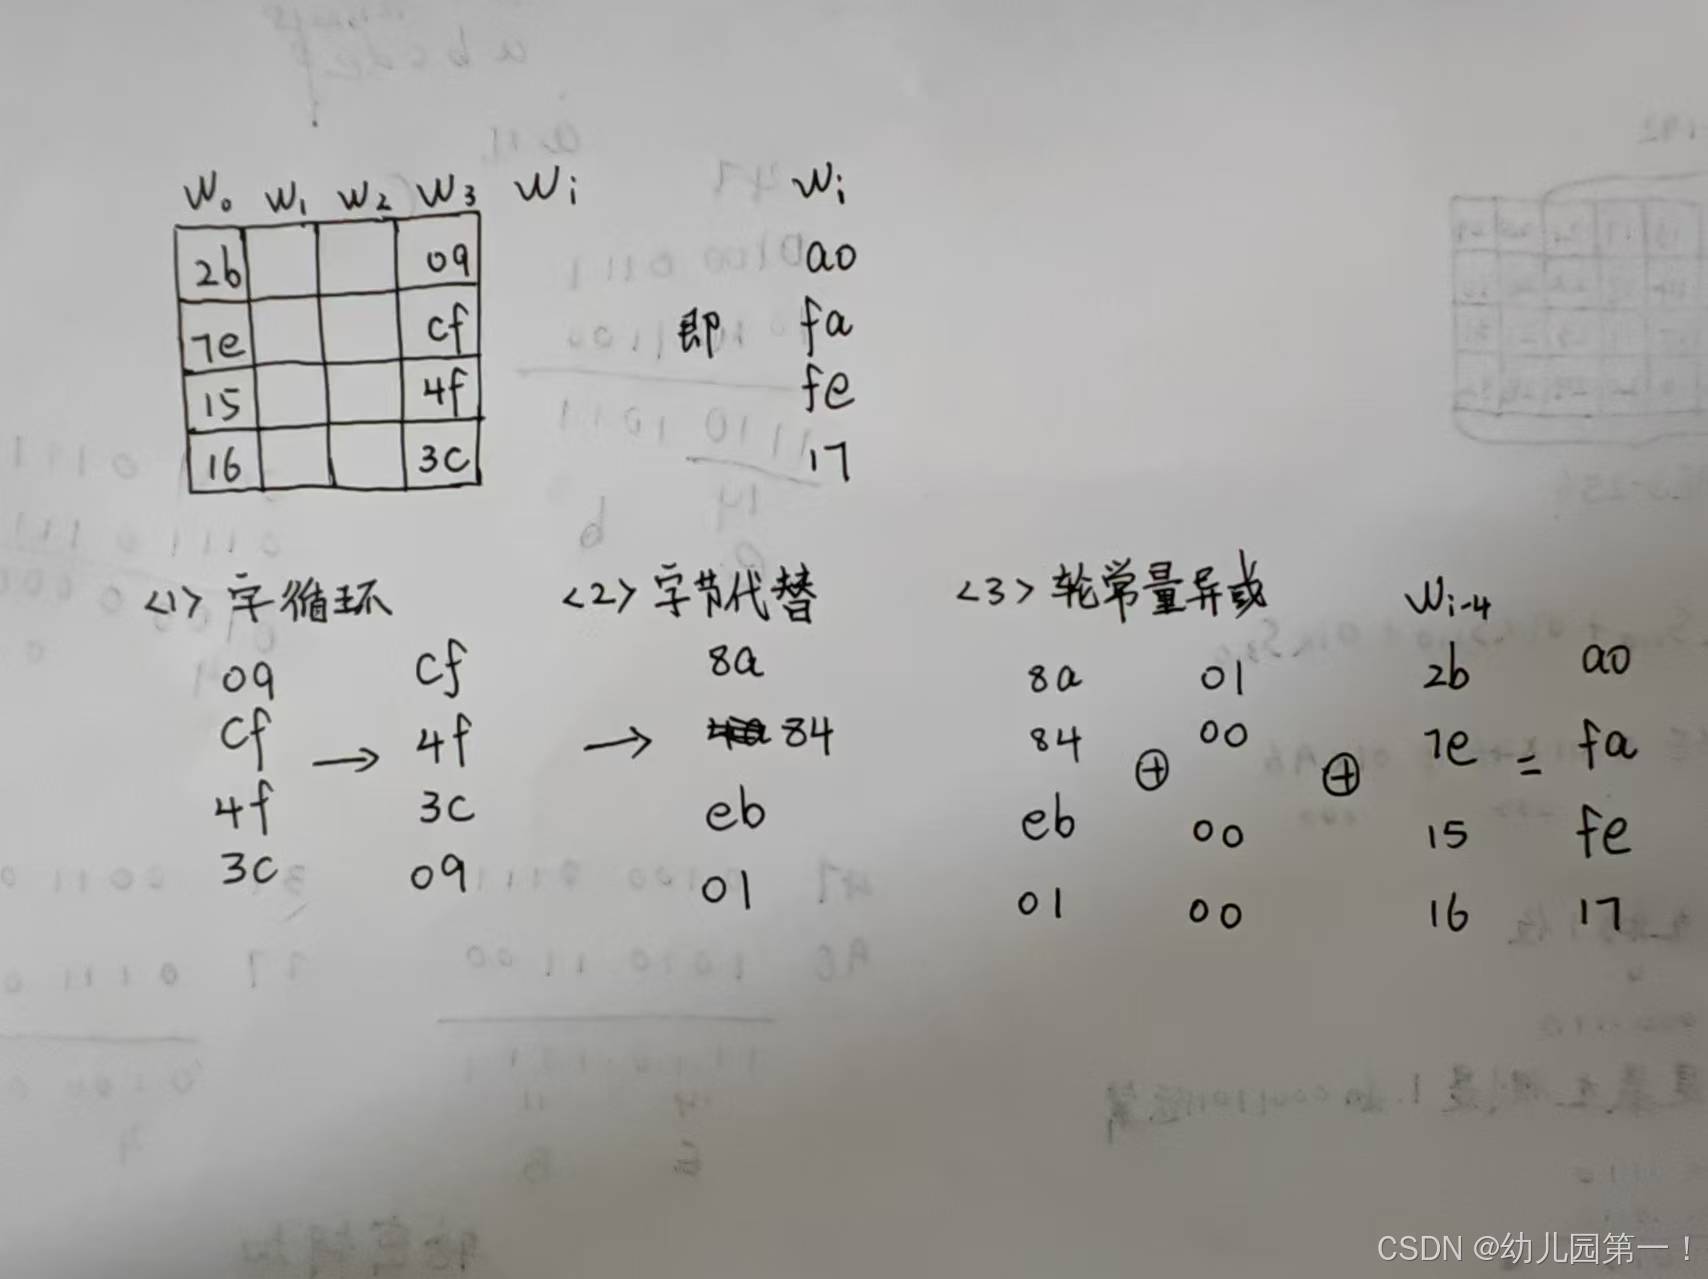 W₀ W₁ W₂ W₃ Wi Wi
2b 09 a0
7e cf 即 fa
15 4f fe
16 3c 17
<1> 字循环 <2> 字节代替 <3> 轮常量异或 Wi-4
09 cf 8a 8a 01 2b a0
cf → 4f → 84 84 ⊕ 00 ⊕ 7e = fa
4f 3c eb eb 00 15 fe
3c 09 01 01 00 16 17
CSDN @幼儿园第一！